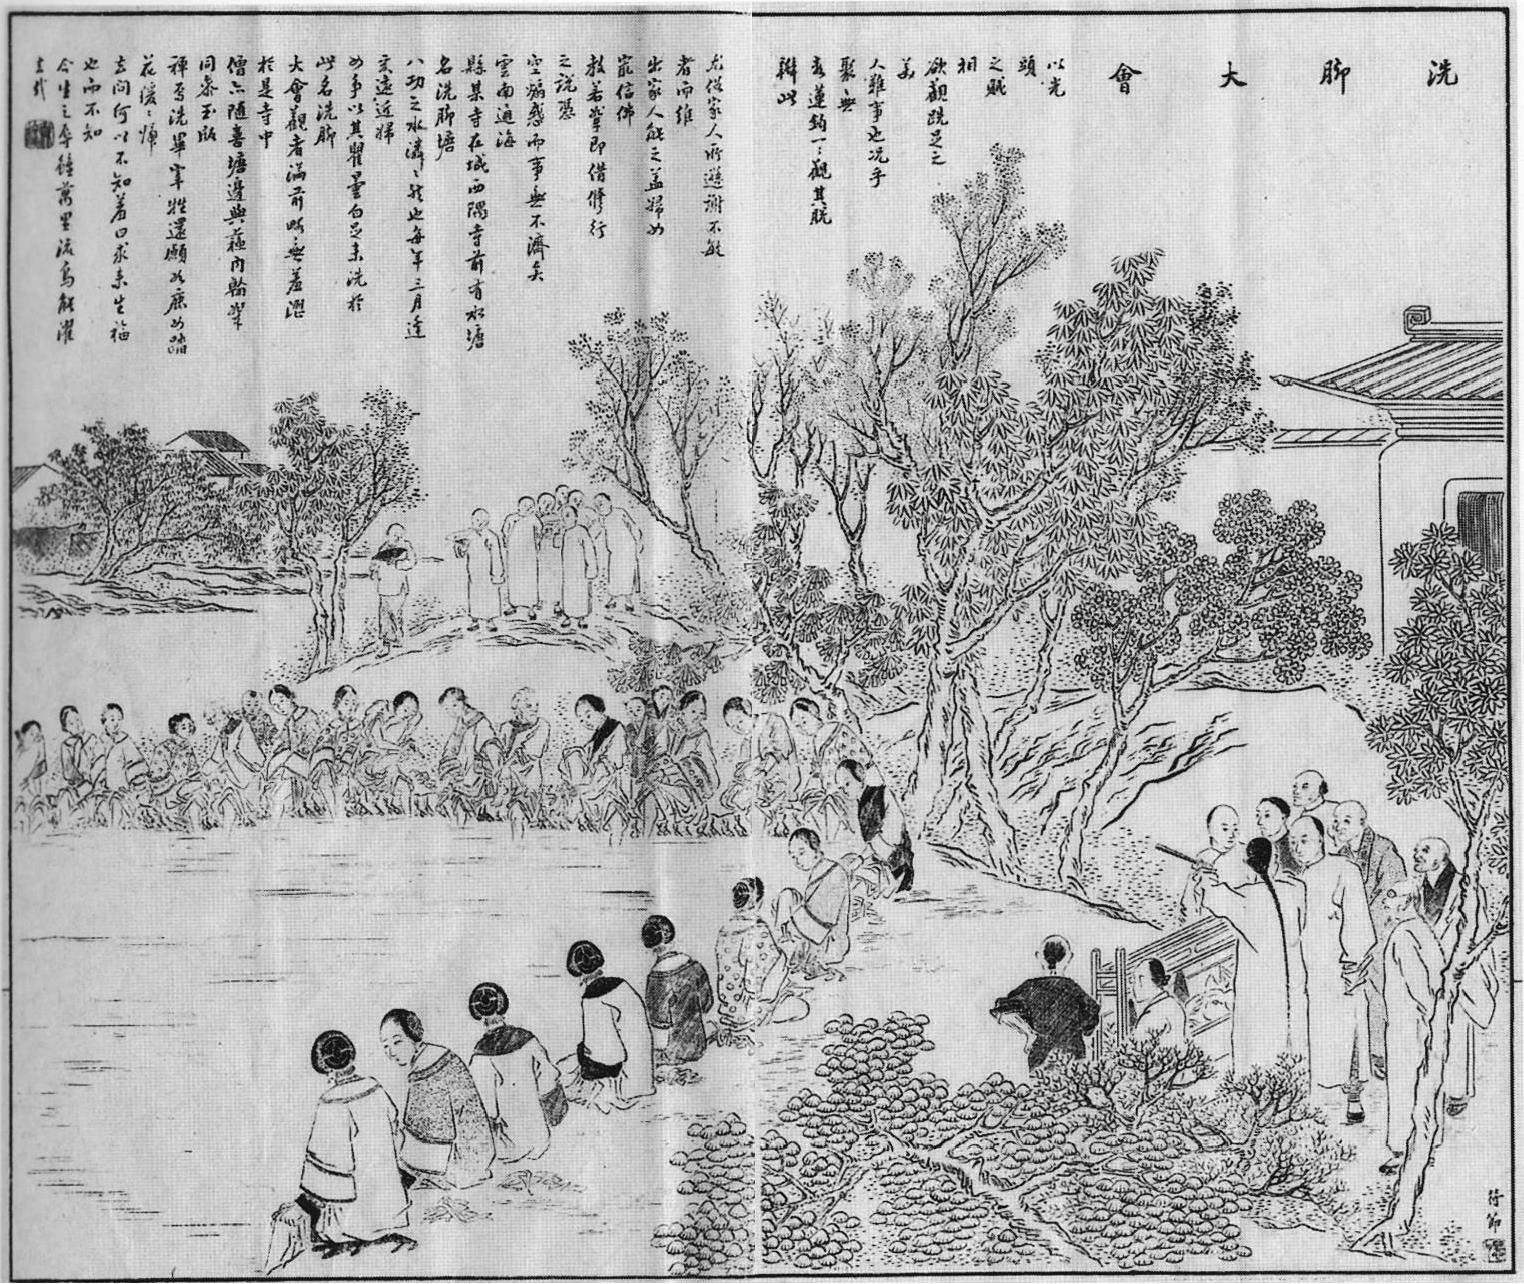 洗脚大會
以光
頭
之賊
相
欲觀跣足之
美
人難事也况乎
聚無
數蓮鉤一一觀其脱
辦此
尤從家人所遜謝不能
者而維
出家人能之蓋婦女
寵信佛
教若輩即借修行
之說憑
空煽惑而事無不濟矣
雲南通海
縣某寺在城西隅寺前有水塘
名洗脚塘
八功之水潾潾然也每年三月逢
亥遠近婦
女爭以其瞿曇白足來洗於
此名洗脚
大會觀者滿前略無羞澀
於是寺中
僧亦隨喜塘邊與蘊內輸輩
同參玉版
禪焉洗畢宰牲還願如鹿女踏
花緩緩歸
去問何以不知羞曰求來生福
也而不知
今生之辱雖萬里流烏能濯
去哉
符節